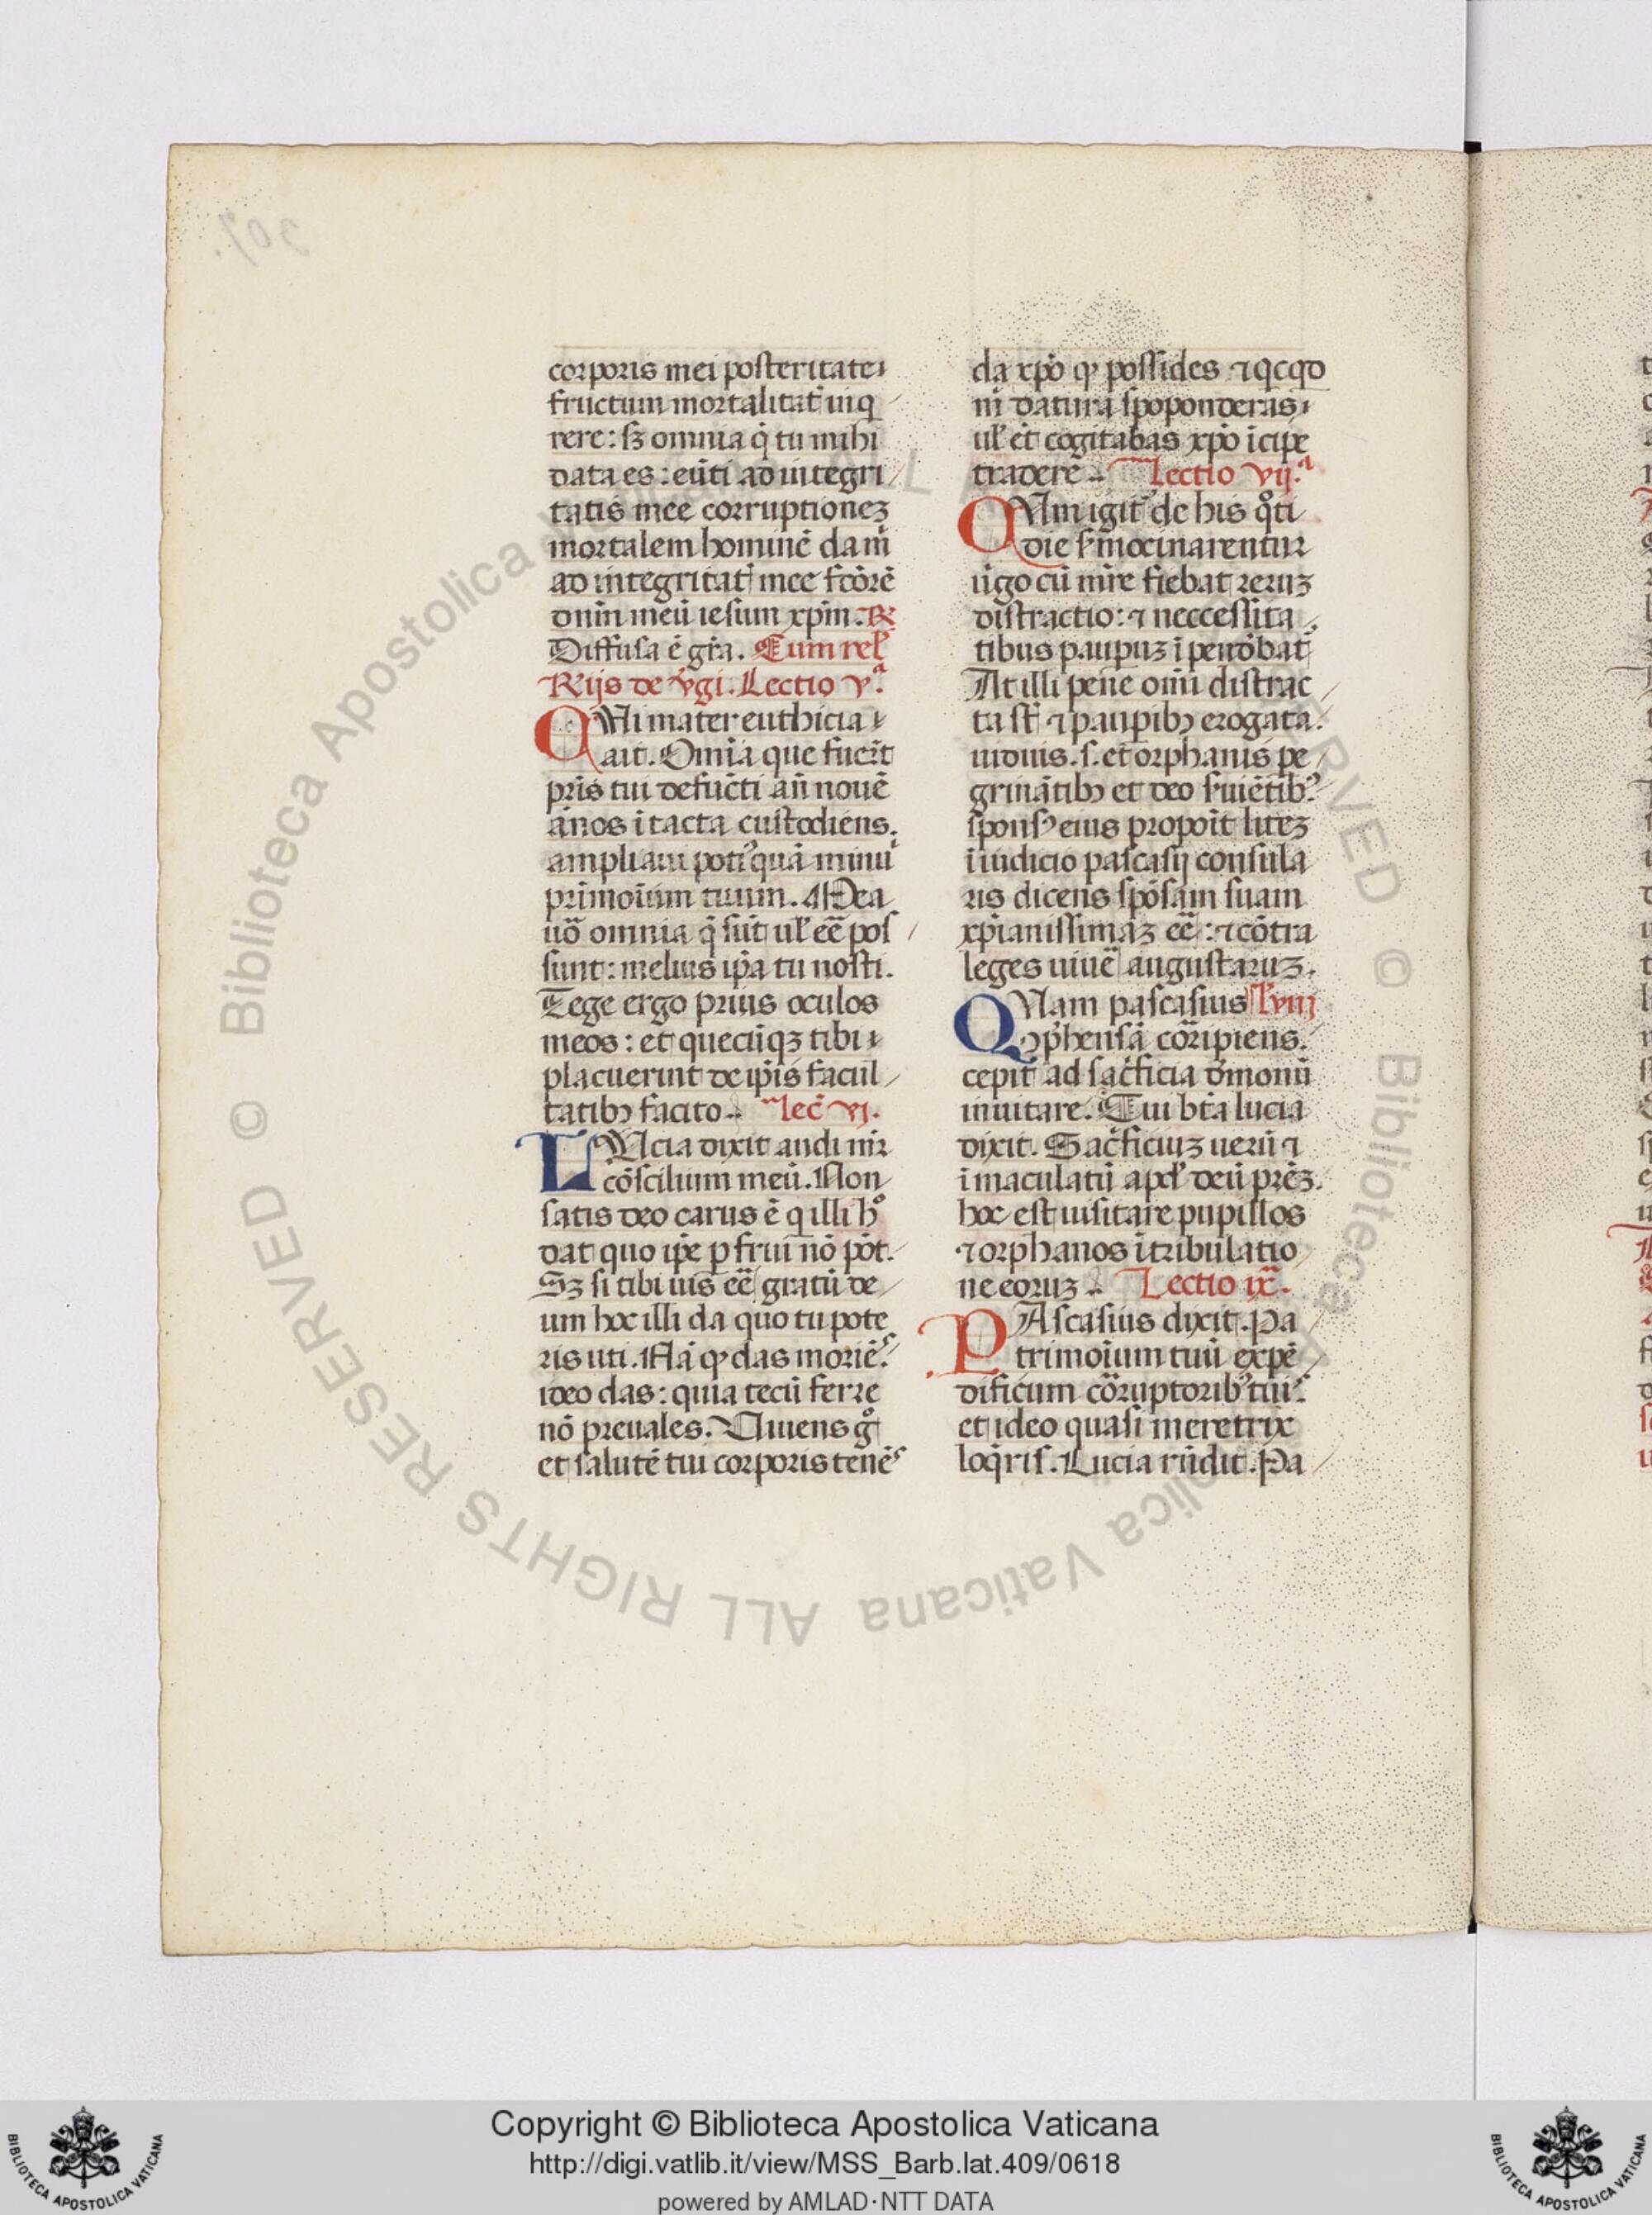 corporis mei posteritate
fructum mortalitat̄ inq
rere: sꝫ omnia q̄ tu mihi
data es: eūti ad integri
tatis mee corruptioneꝫ
mortalem hominē da m̄
ad integritat̄ mee fcōrē
dnm̄ meū iesum xp̄m. ℞
Diffusa ē gr̄a. Cum rel'
Rijs de v̄gi. Lectio v.ª
QUi mater euthicia
ait. Om̄ia que fuer̄t
pr̄is tui defūcti an̄ nouē
ānos ītacta custodiens.
ampliaui poti᾿ quā minui
pr̄imoīum tuum. Mea
uō omnia q̄ sūt ul' eē̄ pos
sunt: melius ip̄a tu nosti.
Tege ergo prius oculos
meos: et quecūqꝫ tibi
placuerint de ip̄is facul
tatibꝫ facito. lec̄ vi.
LUcia dixit audi mr̄
cōscilium meū. Non
satis deo carus ē q illi h°
dat quo ip̄e ꝑfrui nō pōt.
Sꝫ si tibi uis eē̄ gratū de
um hoc illi da quo tu pote
ris uti. Nā ꝙ das moriēs.
ideo das: quia tecū ferre
nō preuales. Uiuens g°
et salutē tui corporis tenēs
da xp̄o ꝙ possides ⁊ qcqd
m̄ daturā spoponderas
ul' et̄ cogitabas xp̄o īcipe
tradere. Lectio vij.ª
QUm igit᾿ de his q°ti
die s̄mocinarentur
ūgo cū mr̄e fiebat reruꝫ
distractio: ⁊ neccessita
tibus paupuꝫ īpendebat᾿
At illi pene om̄i distrac
ta st̄ ⁊ paupibꝫ erogata.
uiduis. s. et orphanis pe
grinātibꝫ et deo s̄uiētibꝫ
spons᾿ eius propoīt liteꝫ
ī iudicio pascasij consula
ris dicens spōsam suam
xp̄ianissimaꝫ eē̄: ⁊ cōtra
leges uiuē̄ augustaruꝫ.
QUam pascasius l' viij
ↄp̄hensā cōripiens.
cepit ad sac̄ficia d̄monū
inuitare. Cui bt̄a lucia
dixit. Sac̄ficiuꝫ uerū ⁊
īmaculatū apd' deū pr̄eꝫ.
hoc est uisitare pupillos
⁊ orphanos ī tribulatio
ne eoruꝫ. Lectio ix.ª
PAscasius dixit. Pa
trimoīum tuū expē
disti cum cōruptoribꝫ tuis.
et ideo quasi meretrix
loq̄ris. Lucia rn̄dit. Pa
Copyright © Biblioteca Apostolica Vaticana
http://digi.vatlib.it/view/MSS_Barb.lat.409/0618
powered by AMLAD·NTT DATA